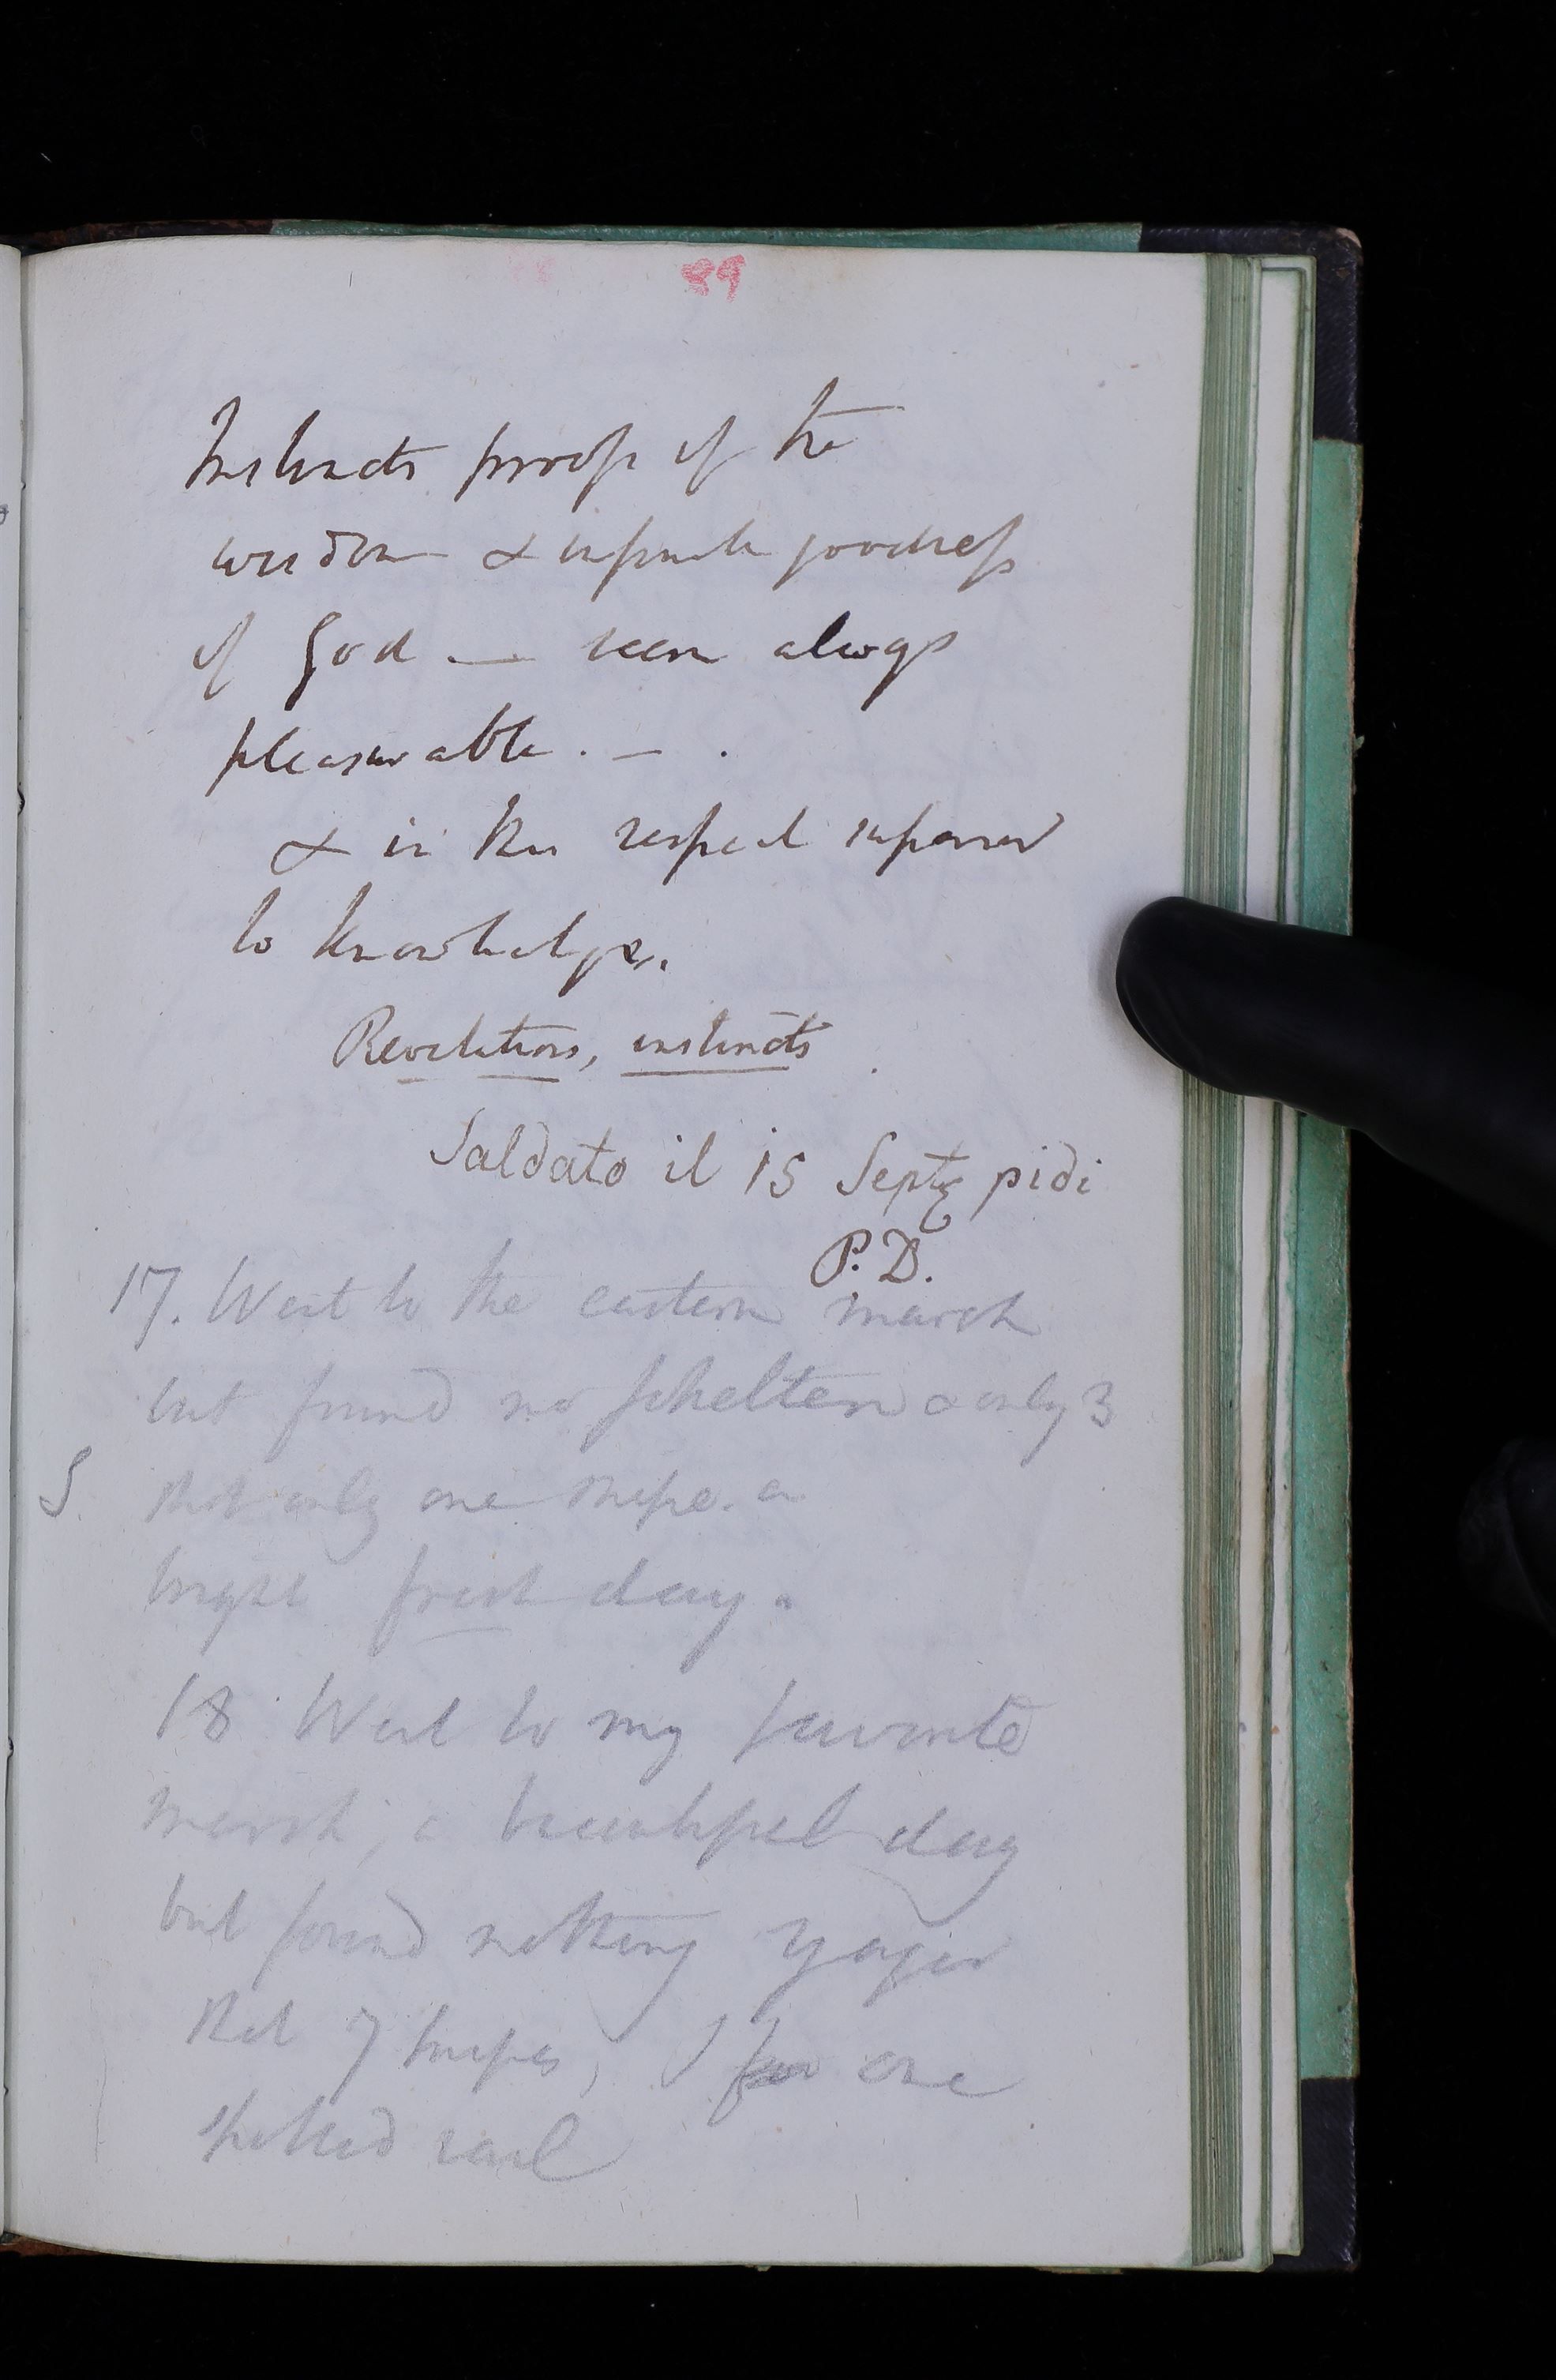 89
Instincts proofs of the
wisdom & infinite goodness
of God — seem always
pleasurable. — .
& in this respect superior
to knowledge.
Revelations, instincts.
Saldato il 15 Septr pidi
P. D.
17. Went to the eastern marsh
but found no schelten & only 3
S. shot only one snipe. a
bright fresh day.
18 Went to my favorite
marsh, a beautiful day
but found nothing yager
shot 7 snipes, I one
spotted rail